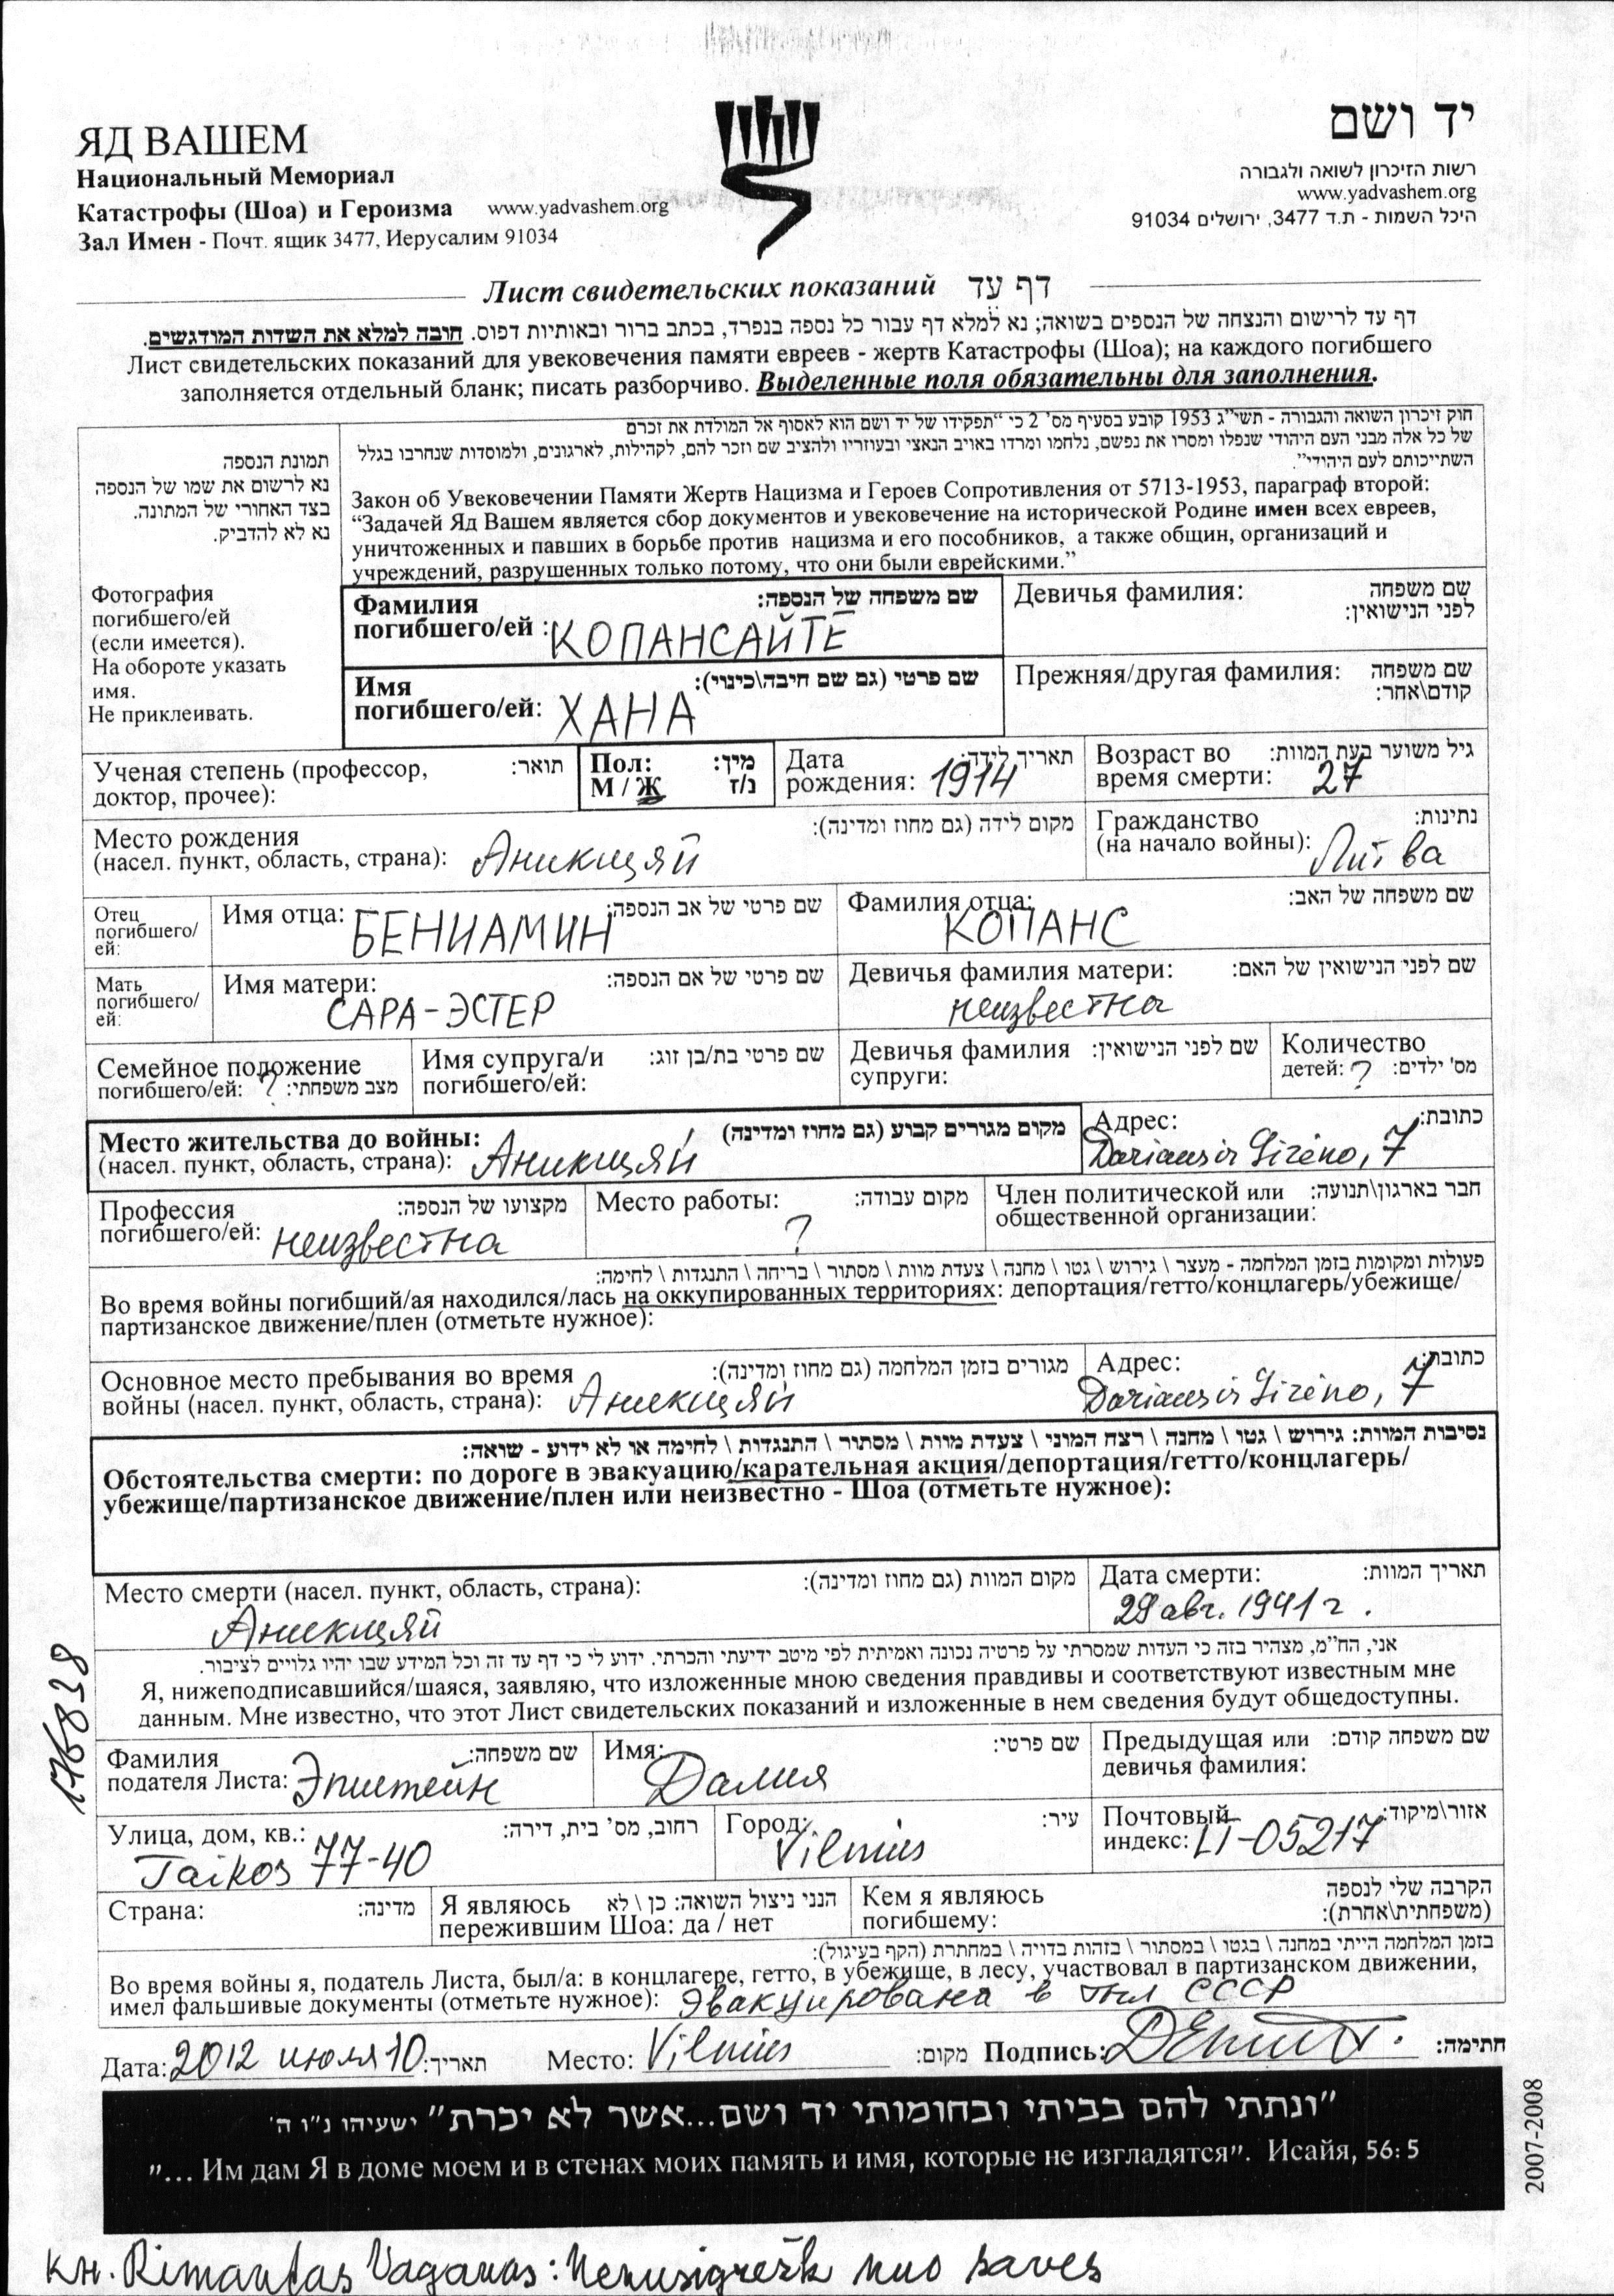 ЯД ВАШЕМ
Национальный Мемориал
Катастрофы (Шоа) и Героизма www.yadvashem.org
Зал Имен - Почт. ящик 3477, Иерусалим 91034
יד ושם
רשות הזיכרון לשואה ולגבורה
www.yadvashem.org
היכל השמות - ת.ד 3477, ירושלים 91034
Лист свидетельских показаний דף עד
דף עד לרישום והנצחה של הנספים בשואה; נא למלא דף עבור כל נספה בנפרד, בכתב ברור ובאותיות דפוס. חובה למלא את השדות המודגשים.
Лист свидетельских показаний для увековечения памяти евреев - жертв Катастрофы (Шоа); на каждого погибшего
заполняется отдельный бланк; писать разборчиво. Выделенные поля обязательны для заполнения.
חוק זיכרון השואה והגבורה - תשי"ג 1953 קובע בסעיף מס' 2 כי "תפקידו של יד ושם הוא לאסוף אל המולדת את זכרם
של כל אלה מבני העם היהודי שנפלו ומסרו את נפשם, נלחמו ומרדו באויב הנאצי ובעוזריו ולהציב שם וזכר להם, לקהילות, לארגונים, ולמוסדות שנחרבו בגלל
השתייכותם לעם היהודי".
Закон об Увековечении Памяти Жертв Нацизма и Героев Сопротивления от 5713-1953, параграф второй:
“Задачей Яд Вашем является сбор документов и увековечение на исторической Родине имен всех евреев,
уничтоженных и павших в борьбе против нацизма и его пособников, а также общин, организаций и
учреждений, разрушенных только потому, что они были еврейскими.”
תמונת הנספה
נא לרשום את שמו של הנספה
בצד האחורי של המתונה.
נא לא להדביק.
Фотография
погибшего/ей
(если имеется).
На обороте указать
имя.
Не приклеивать.
Фамилия שם משפחה של הנספה:
погибшего/ей : КОПАНСАЙТЕ
Девичья фамилия: שם משפחה
לפני הנישואין:
Имя שם פרטי (גם שם חיבה\כינוי):
погибшего/ей: ХАНА
Прежняя/другая фамилия: שם משפחה
קודם\אחר:
Ученая степень (профессор, תואר:
доктор, прочее):
Пол: מין:
М / Ж נ/ז
Дата תאריך לידה:
рождения: 1914
Возраст во גיל משוער בעת המוות:
время смерти: 27
Место рождения מקום לידה (גם מחוז ומדינה):
(насел. пункт, область, страна): Аникщяй
Гражданство נתינות:
(на начало войны): Литва
Отец
погибшего/
ей:
Имя отца: שם פרטי של אב הנספה:
БЕНИАМИН
Фамилия отца: שם משפחה של האב:
КОПАНС
Мать
погибшего/
ей:
Имя матери: שם פרטי של אם הנספה:
САРА-ЭСТЕР
Девичья фамилия матери: שם לפני הנישואין של האם:
неизвестна
Семейное положение
погибшего/ей: ? מצב משפחתי:
Имя супруга/и שם פרטי בת/בן זוג:
погибшего/ей:
Девичья фамилия שם לפני הנישואין:
супруги:
Количество
детей: ? מס' ילדים:
Место жительства до войны: מקום מגורים קבוע (גם מחוז ומדינה)
(насел. пункт, область, страна): Аникщяй
Адрес: כתובת:
Dariaus ir Girėno, 7
Профессия מקצועו של הנספה:
погибшего/ей: неизвестна
Место работы: מקום עבודה:
?
Член политической или חבר בארגון\תנועה:
общественной организации:
פעולות ומקומות בזמן המלחמה - מעצר \ גירוש \ גטו \ מחנה \ צעדת מוות \ מסתור \ בריחה \ התנגדות \ לחימה:
Во время войны погибший/ая находился/лась на оккупированных территориях: депортация/гетто/концлагерь/убежище/
партизанское движение/плен (отметьте нужное):
Основное место пребывания во время מגורים בזמן המלחמה (גם מחוז ומדינה):
войны (насел. пункт, область, страна): Аникщяй
Адрес: כתובת:
Dariaus ir Girėno, 7
נסיבות המוות: גירוש \ גטו \ מחנה \ רצח המוני \ צעדת מוות \ מסתור \ התנגדות \ לחימה או לא ידוע - שואה:
Обстоятельства смерти: по дороге в эвакуацию/карательная акция/депортация/гетто/концлагерь/
убежище/партизанское движение/плен или неизвестно - Шоа (отметьте нужное):
Место смерти (насел. пункт, область, страна): מקום המוות (גם מחוז ומדינה):
Аникщяй
Дата смерти: תאריך המוות:
29 авг. 1941 г.
אני, הח"מ, מצהיר בזה כי העדות שמסרתי על פרטיה נכונה ואמיתית לפי מיטב ידיעתי והכרתי. ידוע לי כי דף עד זה וכל המידע שבו יהיו גלויים לציבור.
Я, нижеподписавшийся/шаяся, заявляю, что изложенные мною сведения правдивы и соответствуют известным мне
данным. Мне известно, что этот Лист свидетельских показаний и изложенные в нем сведения будут общедоступны.
176838
Фамилия שם משפחה:
подателя Листа: Эпштейн
Имя: שם פרטי:
Далия
Предыдущая или שם משפחה קודם:
девичья фамилия:
Улица, дом, кв.: רחוב, מס' בית, דירה:
Taikos 77-40
Город: עיר:
Vilnius
Почтовый אזור\מיקוד:
индекс: LT-05217
Страна: מדינה:
Я являюсь הנני ניצול השואה: כן \ לא
пережившим Шоа: да / нет
Кем я являюсь הקרבה שלי לנספה
погибшему: (משפחתית\אחרת):
בזמן המלחמה הייתי במחנה \ בגטו \ במסתור \ בזהות בדויה \ במחתרת (הקף בעיגול):
Во время войны я, податель Листа, был/а: в концлагере, гетто, в убежище, в лесу, участвовал в партизанском движении,
имел фальшивые документы (отметьте нужное): эвакуирована в тыл СССР
Дата: 2012 июля 10 תאריך: Место: Vilnius מקום: Подпись: חתימה:
"ונתתי להם בביתי ובחומותי יד ושם...אשר לא יכרת" ישעיהו נ"ו ה'
"... Им дам Я в доме моем и в стенах моих память и имя, которые не изгладятся". Исайя, 56: 5
2007-2008
кн. Rimantas Vaganas: nuo saves